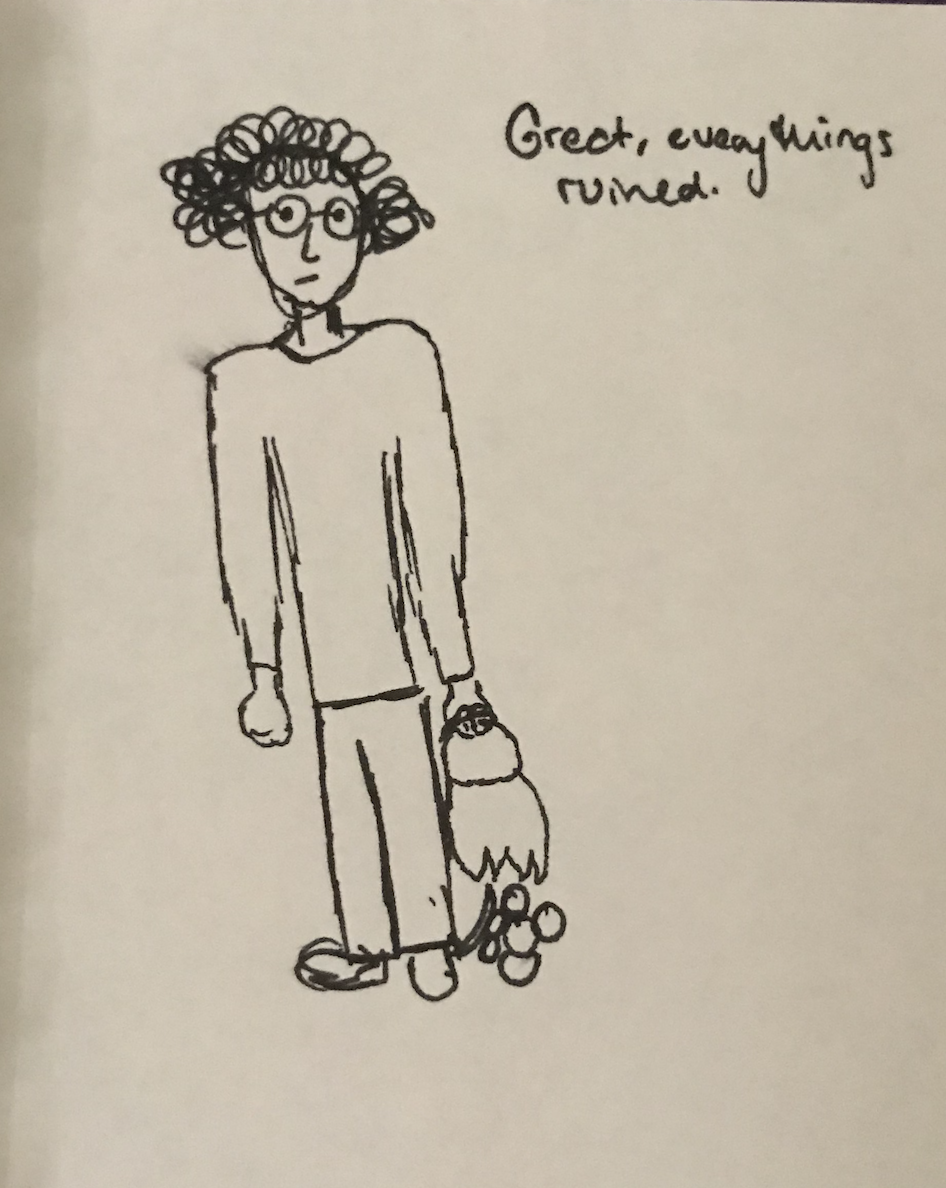 Great, everythings
ruined.